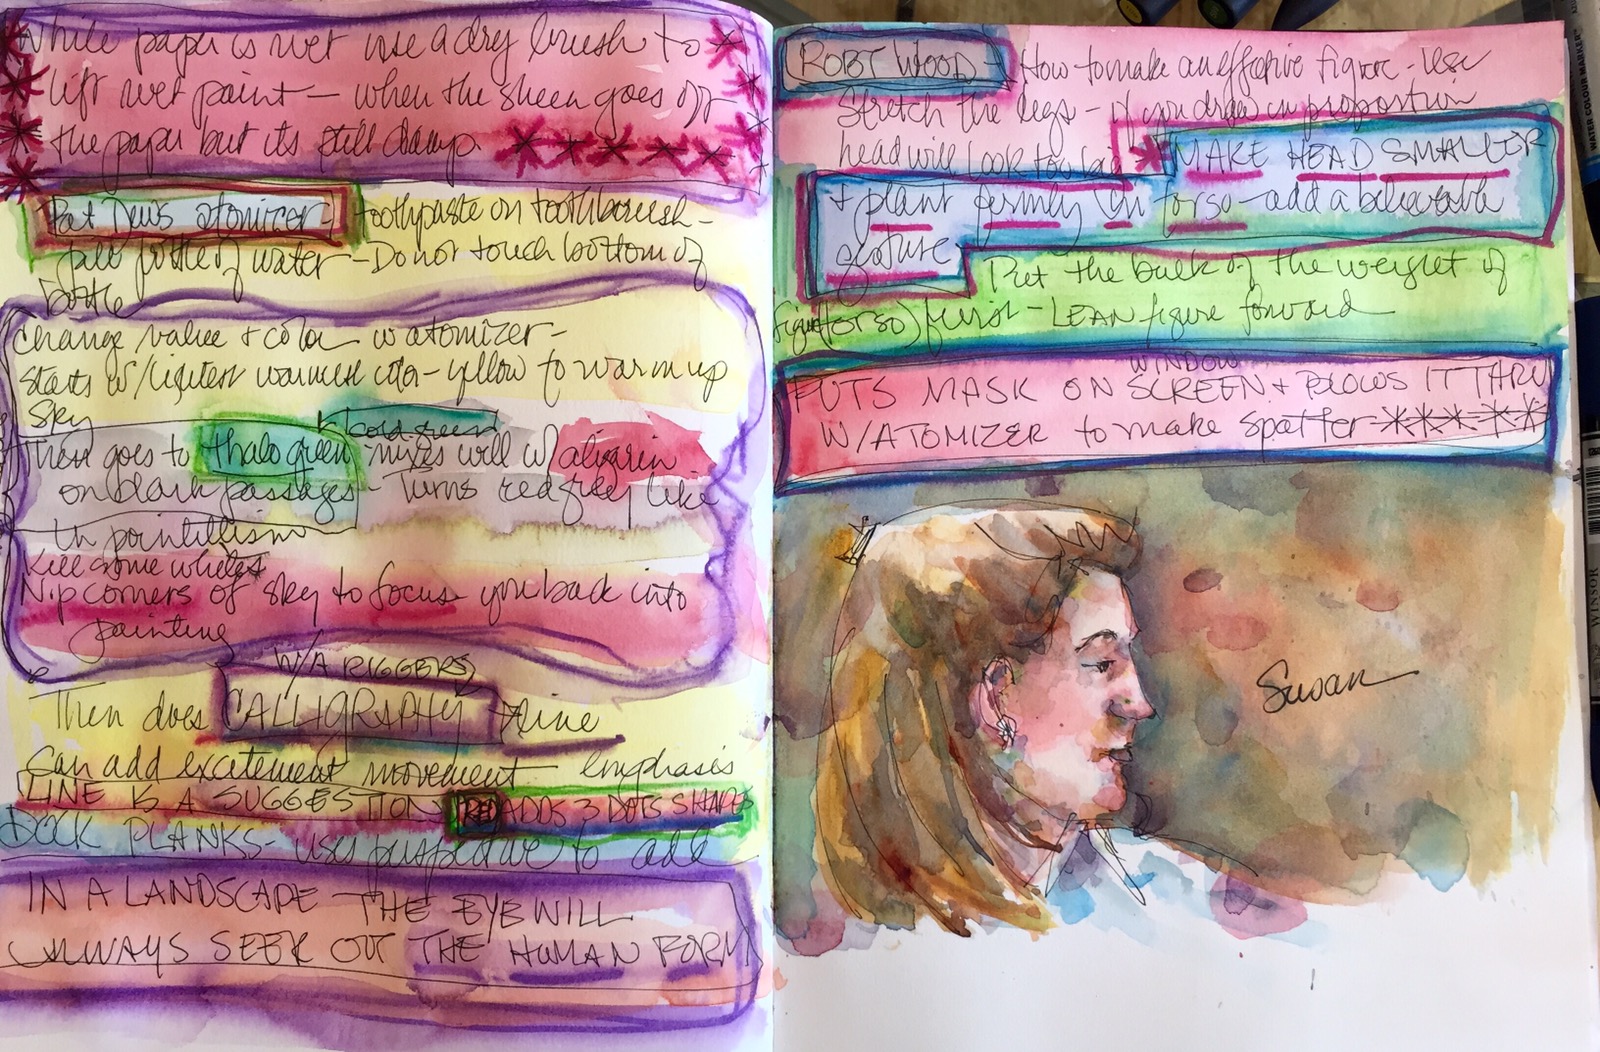 While paper is wet use a dry brush to
lift wet paint – when the sheen goes off
the paper but its still damp.
Pat Dews atomizer – toothpaste on toothbrush –
fill bottle of water – Do not touch bottom of
bottle
Change value + color w atomizer –
Starts w/lightest warmest color – yellow to warm up
sky
+ cold green
Then goes to thalo green – mixes well w/ alizarin
on dark passages – Turns red grey like
in pointillism
Kill some whites
Nip corners of sky to focus you back into
painting
W/A RIGGERS
Then does CALLIGRAPHY Line
Can add excitement movement – emphasis
LINE IS A SUGGESTION RED ADDS 3 DOTS SHAPES
DOCK PLANKS – uses perspective to add
IN A LANDSCAPE – THE EYE WILL
ALWAYS SEEK OUT THE HUMAN FORM
ROBT WOOD – How to make an effective figure – Use
Stretch the legs – if you draw in proportion
head will look too big MAKE HEAD SMALLER
+ plant firmly on torso – add a believable
gesture Put the bulk of the weight of
figure (torso) first – LEAN figure forward
WINDOW
PUTS MASK ON SCREEN + BLOWS IT THRU
W/ATOMIZER to make spatter
Susan
WATER COLOUR MARKER
WINSOR